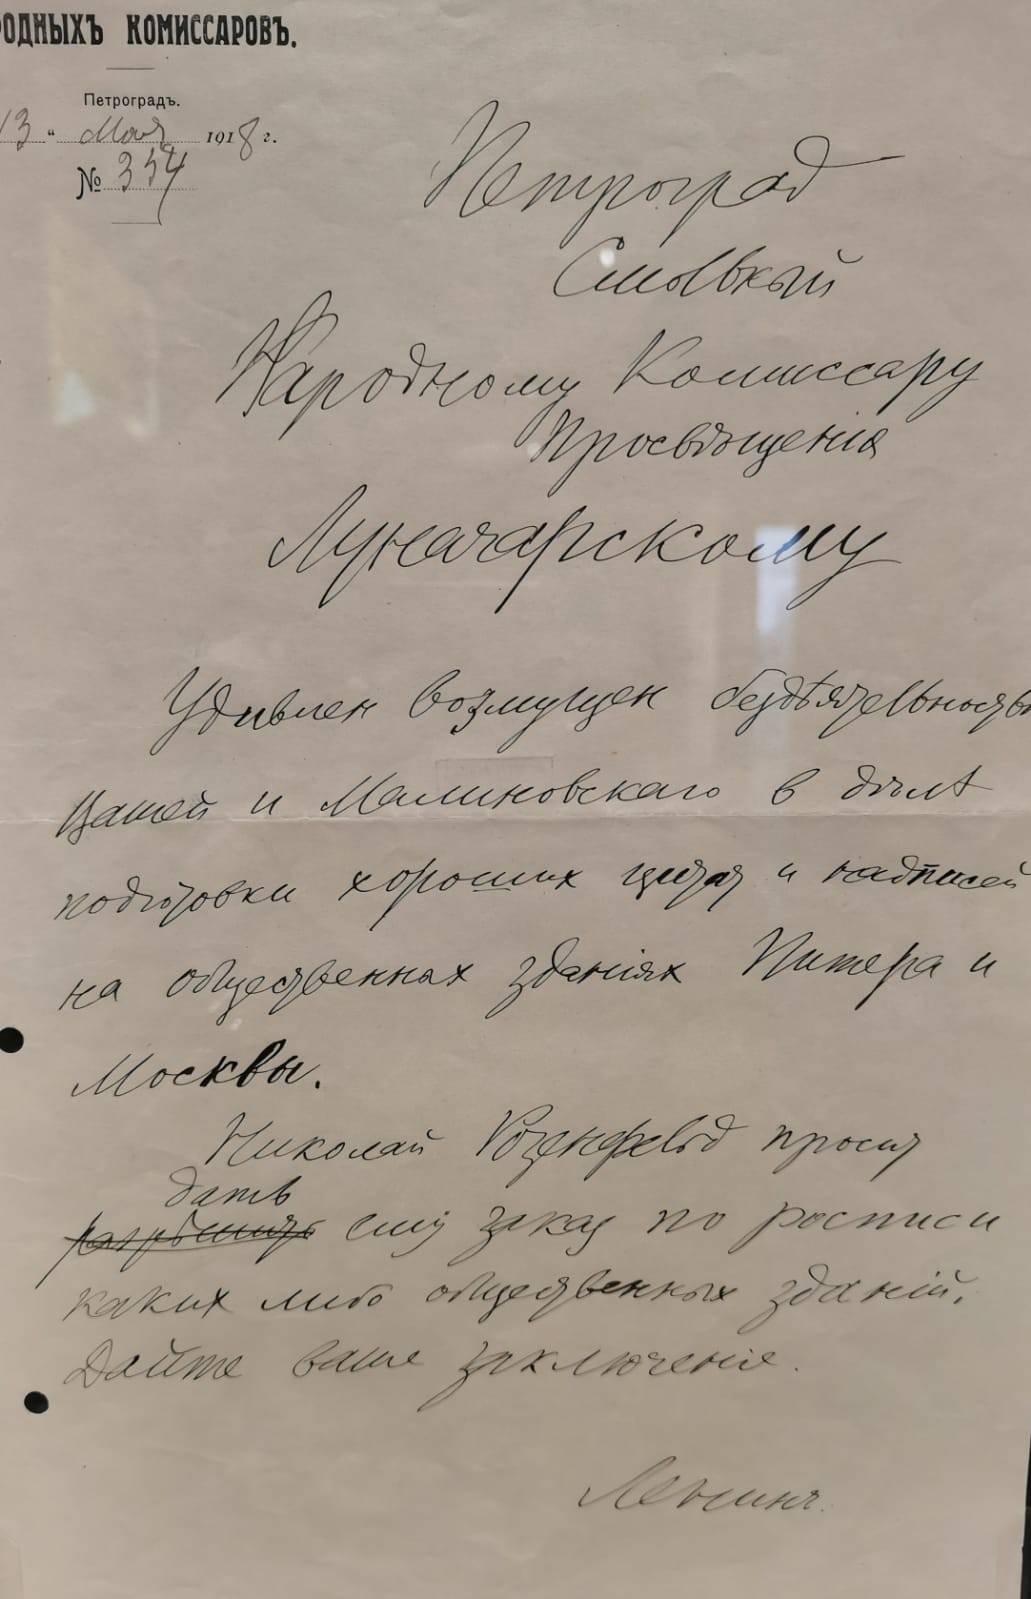 РОДНЫХЪ КОМИССАРОВЪ.
Петроградъ.
13 " Мая 1918 г.
№ 354
Петроград
Смольный
Народному Комиссару
Просвѣщенія
Луначарскому
Удивлен возмущен бездѣятельностью
Вашей и Малиновскаго в дѣлѣ
подготовки хороших цитат и надписей
на общественных зданіях Питера и
Москвы.
Николай Розенфельд просит
дать
разрѣшить ему заказ по росписи
каких либо общественных зданій.
Дайте ваше заключеніе.
Ленинъ.